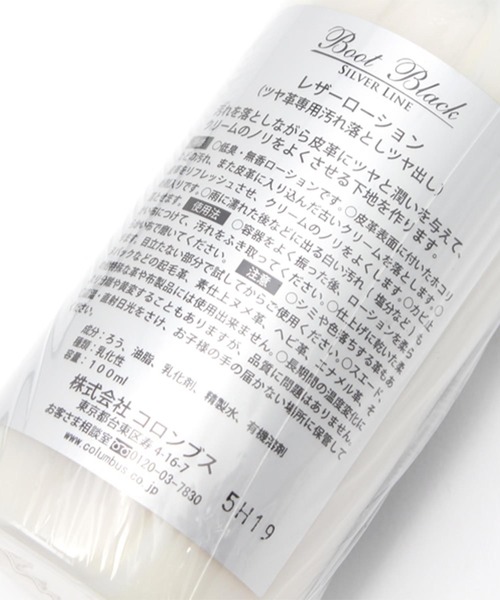 Boot Black
SILVER LINE
レザーローション
(ツヤ革専用汚れ落としツヤ出し)
汚れを落としながら皮革にツヤと潤いを与えて、
クリームのノリをよくさせる下地を作ります。
○低臭・無香ローションです。○皮革表面に付いたホコリ
などの汚れ、また皮革に入り込んだ古いクリームを落とします。
をリフレッシュさせ、クリームのノリをよくします。○カビ止
入りです。○雨に濡れた後などに出る白い汚れ「塩分など」も
できます。 使用法 ○容器をよく振った後、ローションを柔ら
布につけて、汚れをふき取ってください。○仕上げに乾いた柔
布で磨いてください。 注意 ○シミや色落ちする革もあ
ます、目立たない部分で試してからご使用ください。○スエード、
バックなどの起毛革、素仕上ヌメ革、ヘビ革、エナメル革、そ
特殊な革や布製品には使用出来ません。○長期間の温度変化に
油離や黄変することもありますが、品質に問題はありません。
温・直射日光をさけ、お子様の手の届かない場所に保管して
ださい。
成分：ろう、油脂、乳化剤、精製水、有機溶剤
種類：乳化性
容量：100ml
株式会社 コロンブス
東京都台東区寿4-16-7
お客さま相談室 0120-03-7830
www.columbus.co.jp
5H19